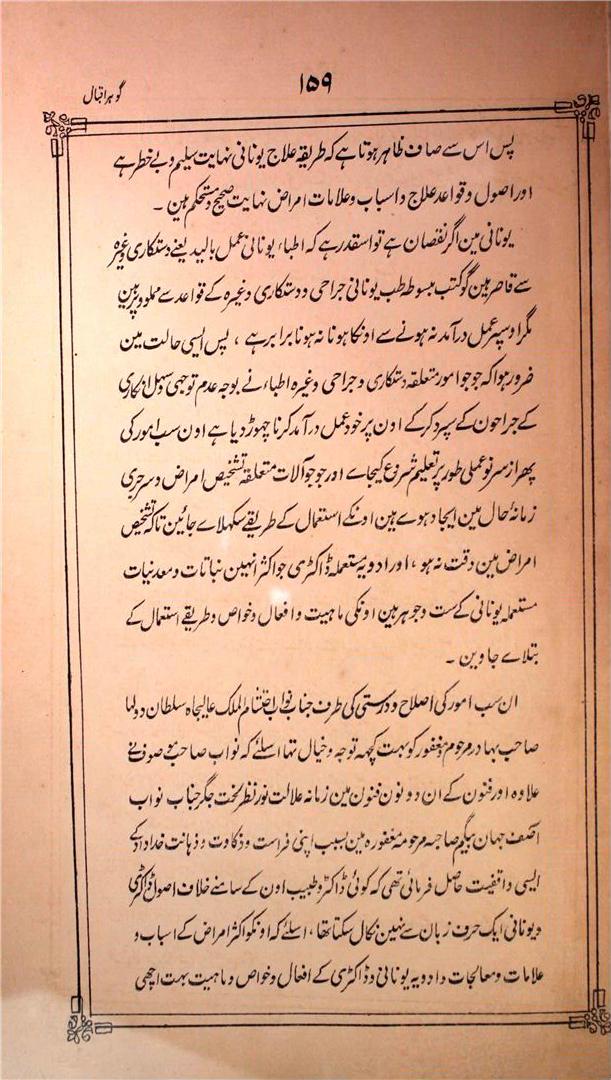 ۱۵۹
گوہر اقبال
پس اس سے صاف ظاہر ہوتا ہے کہ طریقہ علاج یونانی نہایت سلیم و بے خطر ہے
اور اصول و قواعد علاج و اسباب و علامات امراض نہایت صحیح و مستحکم ہین ۔
یونانی مین اگر نقصان ہے تو اسقدر ہے کہ اطباء یونانی عمل بالید یعنے دستکاری وغیرہ
سے قاصر ہین گو کتب مبسوطہ طب یونانی جراحی و دستکاری وغیرہ کے قواعد سے مملو و پر ہین
مگر اوسپر عمل درآمد نہ ہونے سے اونکا ہونا نہ ہونا برابر ہے ، پس ایسی حالت مین
ضرور ہوا کہ جو جو امور متعلقہ دستکاری و جراحی وغیرہ اطباء نے بوجہ عدم توجہی و سہل انکاری
کے جراحون کے سپرد کرکے اون پر خود عمل درآمد کرنا چہوڑ دیا ہے اون سب امور کی
پھر از سر نو عملی طور پر تعلیم شروع کیجاے اور جو جو آلات متعلقہ تشخیص امراض و سرجری
زمانہ حال مین ایجاد ہوے ہین اونکے استعمال کے طریقے سکھلاے جائین تاکہ تشخیص
امراض مین دقت نہ ہو ، اور ادویہ مستعملہ ڈاکٹری جو اکثر انہین نباتات و معدنیات
مستعملہ یونانی کے ست و جوہر ہین اونکی ماہیت و افعال و خواص و طریقے استعمال کے
بتلاے جاوین ۔
ان سب امور کی اصلاح و درستی کی طرف جناب نواب احتشام الملک عالیجاہ سلطان دولہا
صاحب بہادر مرحوم و مغفور کو بہت کچہہ توجہ و خیال تہا اسلئے کہ نواب صاحب موصوف نے
علاوہ اور فنون کے ان دونون فنون مین زمانہ علالت نور نظر لخت جگر جناب نواب
آصف جہان بیگم صاحبہ مرحومہ مغفورہ مین بسبب اپنی فراست و ذکاوت و ذہانت خداداد کے
ایسی واقفیت حاصل فرمائی تھی کہ کوئی ڈاکٹر و طبیب اون کے سامنے خلاف اصول ڈاکٹری
و یونانی ایک حرف زبان سے نہین نکال سکتا تھا ، اسلئے کہ اونکو اکثر امراض کے اسباب و
علامات و معالجات و ادویہ یونانی و ڈاکٹری کے افعال و خواص و ماہیت بہت اچھی